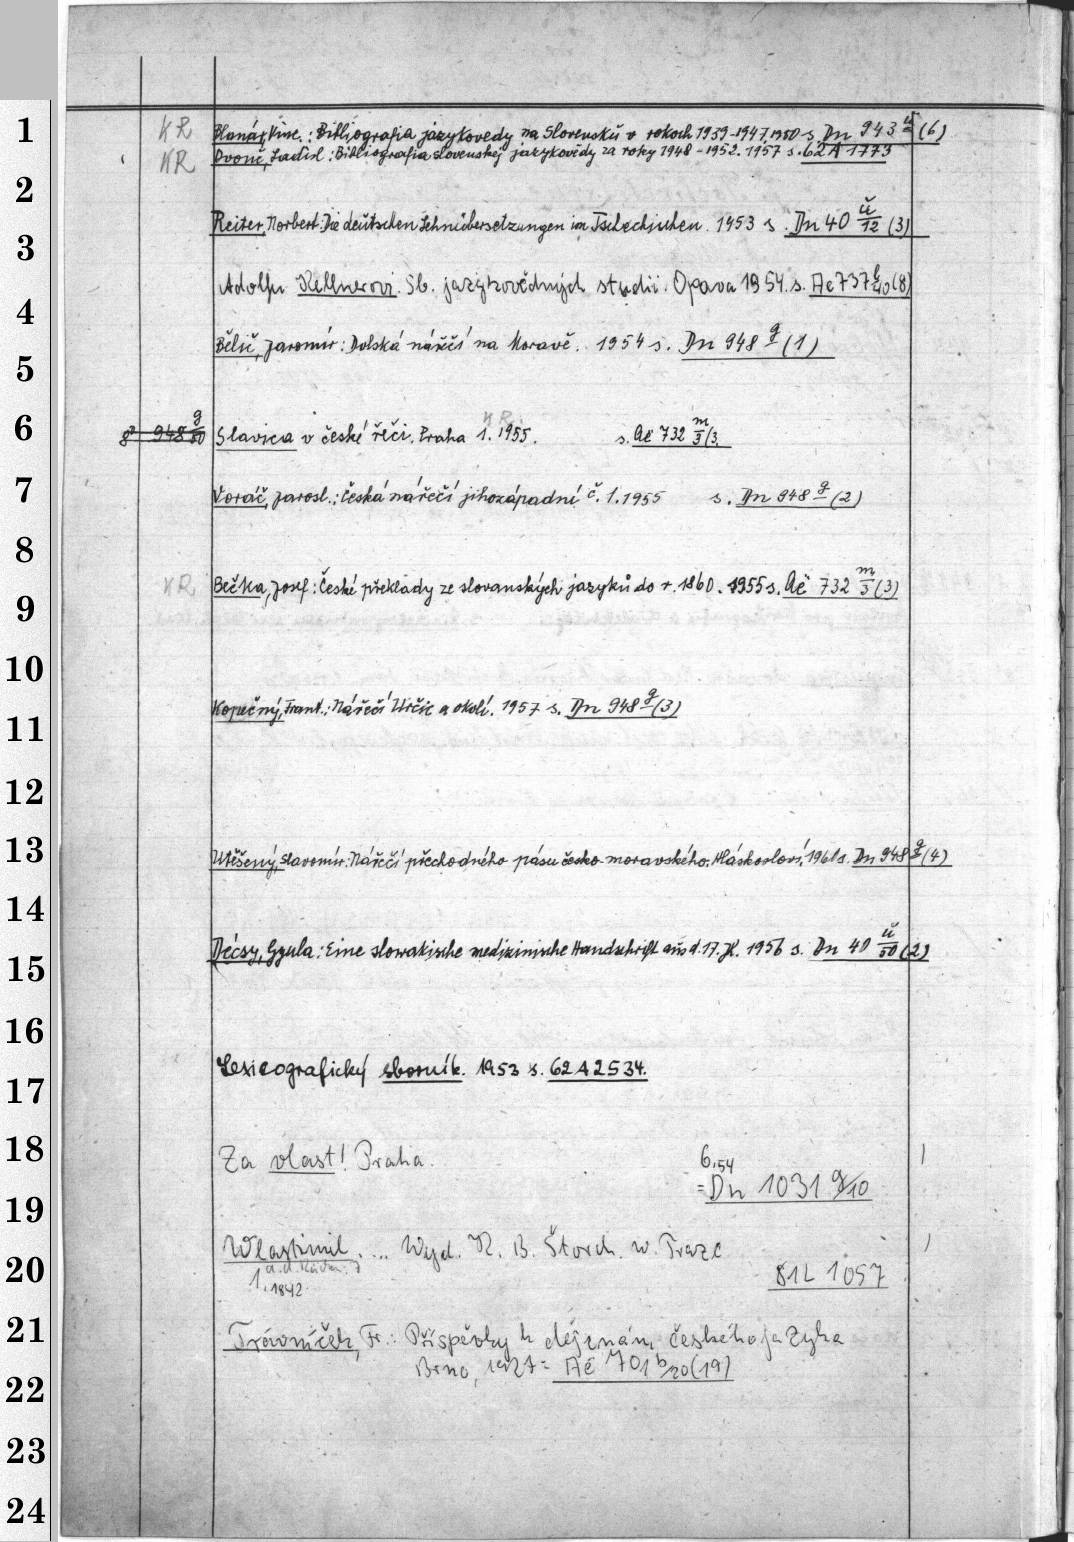 1
KR Blanár, Vinc.: Bibliografia jazykovedy na Slovensku v rokoch 1939-1947. 1950 s. Dn 943 (6)
KR Dvonč, Ladisl: Bibliografia slovenskej jazykovědy za roky 1948-1952. 1957 s. 62 A 1773
2
Reiter, Norbert: Die deutschen Lehnübersetzungen im Tschechischen. 1953 s. Dn 40 ü/12 (3)
3
Adolfu Kellnerovi. Sb. jazykovědných studii. Opava 1954. s. Ae 737 (8)
4
Bělič, Jaromír: Dolská nářečí na Moravě. 1954 s. Dn 948 g (1)
5
6
948 g/50 Slavica v české řeči. Praha 1. 1955. KR s. Aë 732 m/3 (3.
7
Voráč, Jarosl.: Česká nářečí jihozápadní č. 1. 1955 s. Dn 948 g (2)
8
KR Bečka, Josef: České překlady ze slovanských jazyků do r. 1860. 1955 s. Aë 732 m/3 (3)
9
10
Kopečný, Frant.: Nářečí Určic a okolí. 1957 s. Dn 948 g (3)
11
12
13
Utěšený, Slavomír: Nářečí přechodného pásu česko-moravského. Hláskosloví. 1960 s. Dn 948 g (4)
14
Décsy, Gyula: Eine slowakische medizinische Handschrift aus d. 17. Jh. 1956 s. Dn 40 ü/50 (2)
15
16
Lexicografický sborník. 1953 s. 62 A 2534.
17
18
Za vlast! Praha. 6,54 1
= Dn 1031 g/10
19
Wlastimil. ... Wyd. K. B. Štorch. w. Praze 1
20
1. 1842 81 L 1057
21
Trávníček, Fr.: Příspěvky k dějinám českého jazyka
Brno, 1927 = Aë 701 b/20 (19)
22
23
24